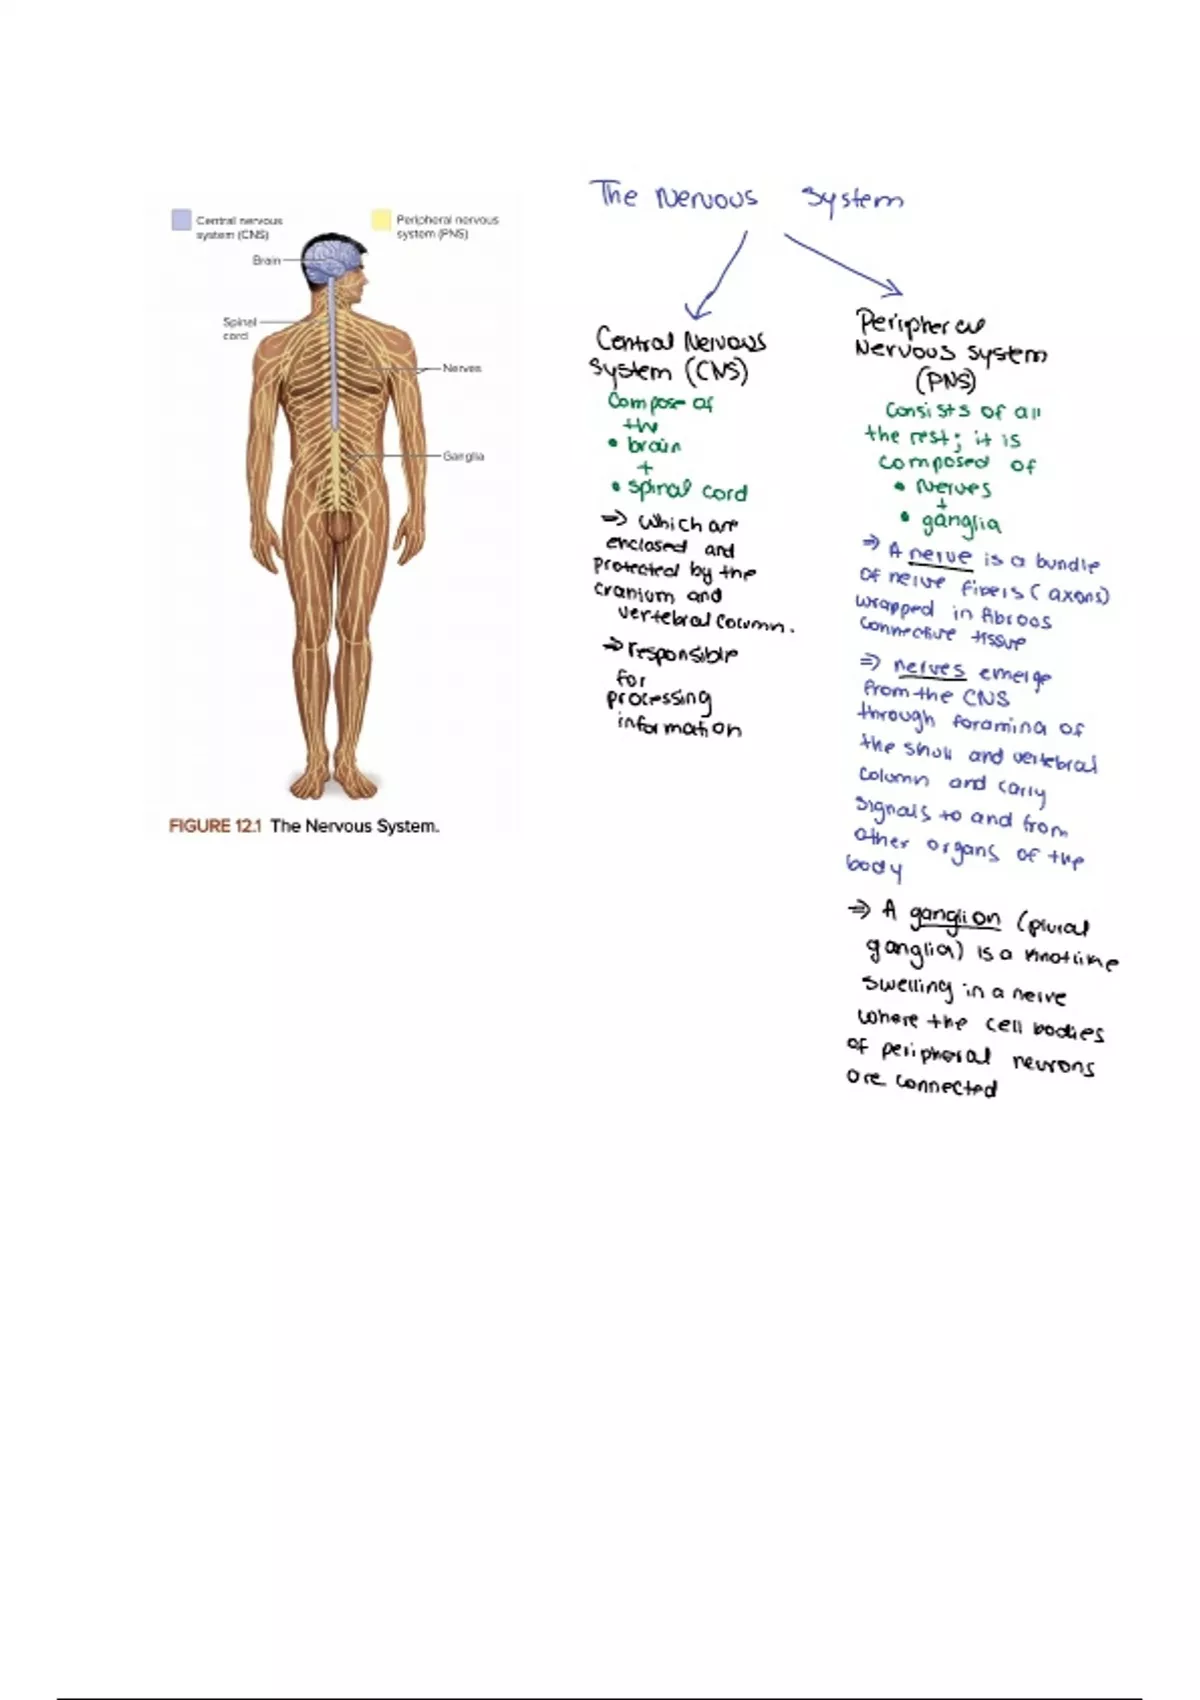 Central nervous
system (CNS)
Peripheral nervous
system (PNS)
Brain
Spinal
cord
Nerves
Ganglia
FIGURE 12.1 The Nervous System.
The Nervous System
Central Nervous
System (CNS)
Compose of
the
• brain
+
• spinal cord
⇒ Which are
enclosed and
protected by the
cranium and
vertebral column.
⇒ responsible
for
processing
information
Peripheral
Nervous System
(PNS)
Consists of all
the rest; it is
composed of
• Nerves
+
• ganglia
⇒ A nerve is a bundle
of nerve fibers (axons)
wrapped in fibroos
connective tissue
⇒ nerves emerge
from the CNS
through foramina of
the skull and vertebral
column and carry
signals to and from
other organs of the
body
⇒ A ganglion (plural
ganglia) is a knotlike
swelling in a nerve
where the cell bodies
of peripheral neurons
are connected